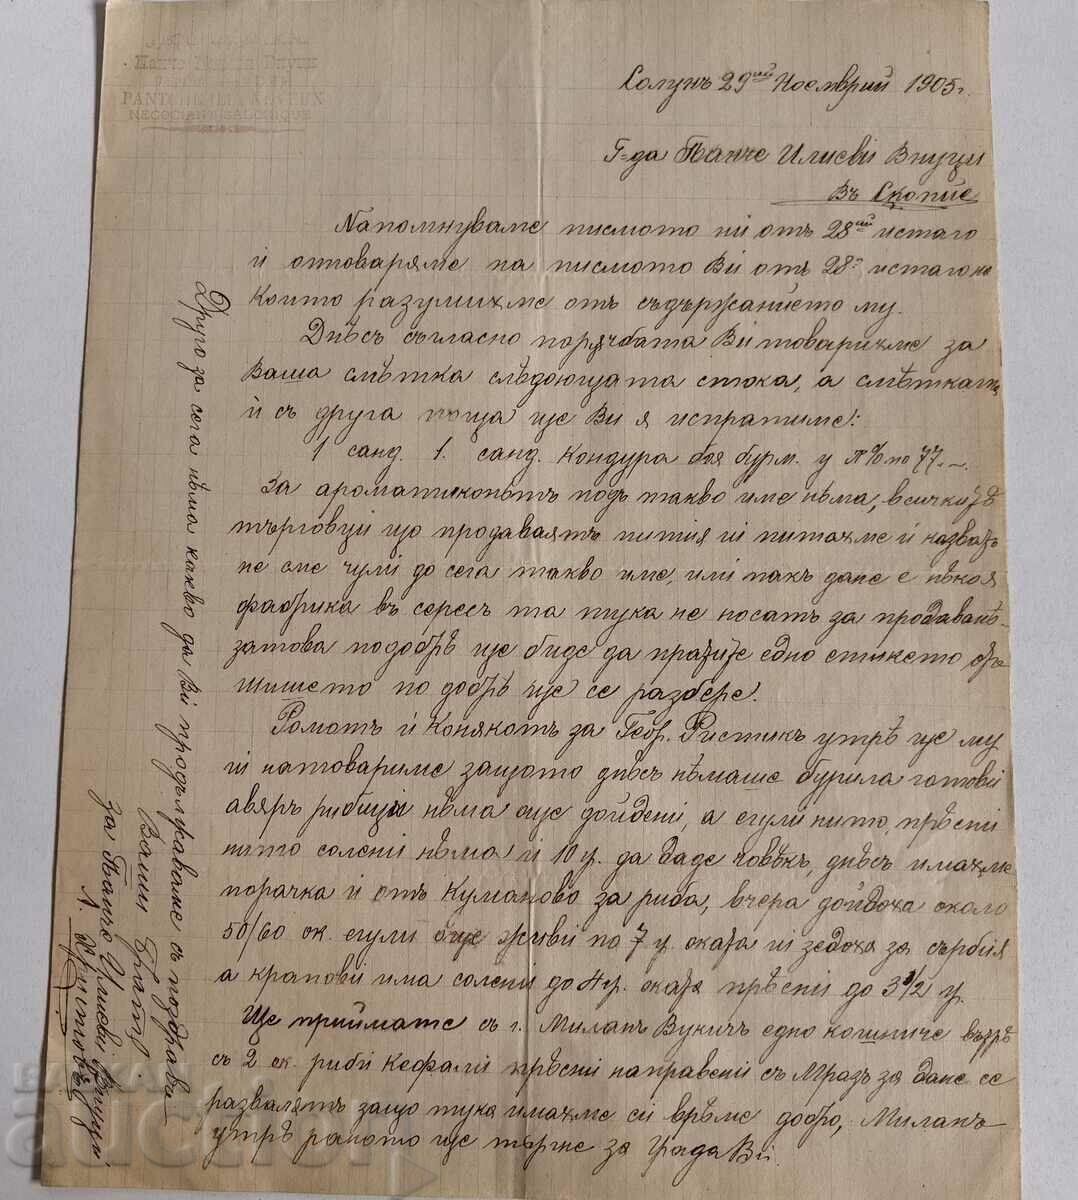 PANTCHE ILIEV NEVEUX
NEGOCIANT SALONIQUE
Солунъ 29ий Ноемврий 1905 г.
Г-да Панче Илиеви Внуци
Въ Скопие
Напомнуваме писмото ни отъ 28ий истаго
и отговаряме на писмото Ви отъ 28й истаго на
които разумихме отъ съдържанието му.
Днѣсъ съгласно порѫчбата Ви товарихме за
Ваша смѣтка слѣдоющата стока, а смѣтката
й съ друга поща ще Ви я испратиме:
1 санд. 1. санд. кондура боя бурм. у л% по 77.-
За ароматикопътъ подъ такво име нѣма, всичкитѣ
търговци що продаваятъ пития ги питахме и казватъ
не сме чули до сега такво име, или пакъ дане е нѣкоя
фабрика въ Сересъ та тука не носатъ за продаванѣ
затова по добрѣ ще биде да пратите едно етикето отъ
шишето по добрѣ ще се разбере.
Ромотъ и Конякотъ за Геор. Ристикъ утрѣ ще му
ги натовариме защото днѣсъ нѣмаше бурила готови
авяръ рибици нѣма още дойдени, а егули нито прѣсни
нито солени нѣма и 10 у. да даде човѣкъ, днѣсъ имахме
порачка и отъ Куманово за риба, вчера дойдоха около
50/60 ок. егули още живи по 7 у. оката ги зедоха за сърбия
а крапови има солени до 4 у. оката прѣсни до 3 1/2 у.
Ще приймате съ г. Миланъ Вукичъ едно кошниче вътрѣ
съ 2 ок. риби кефали прѣсни направени съ мразъ за дане се
развалятъ защо тука имахме си врѣме добро, Миланъ
утрѣ раното ще търгне за града Ви.
Друго за сега нѣма какво да Ви продължаваме съ поздрави
Ваши Братя.
За Панчо Илиеви Внуци
А. Христовъ
БАЛКАН
auction